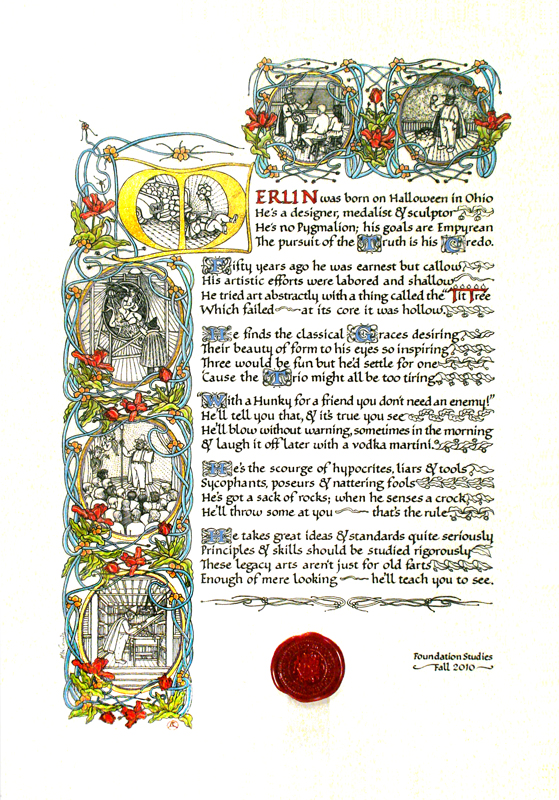 MERLIN was born on Halloween in Ohio
He's a designer, medalist & sculptor
He's no Pygmalion; his goals are Empyrean
The pursuit of the Truth is his Credo.
Fifty years ago he was earnest but callow
His artistic efforts were labored and shallow
He tried art abstractly with a thing called the "Tit Tree
Which failed — at its core it was hollow.
He finds the classical Graces desiring
Their beauty of form to his eyes so inspiring
Three would be fun but he'd settle for one
'Cause the Trio might all be too tiring.
"With a Hunky for a friend you don't need an enemy!"
He'll tell you that, & it's true you see
He'll blow without warning, sometimes in the morning
& laugh it off later with a vodka martini.
He's the scourge of hypocrites, liars & tools
Sycophants, poseurs & nattering fools
He's got a sack of rocks; when he senses a crock
He'll throw some at you — that's the rule
He takes great ideas & standards quite seriously
Principles & skills should be studied rigorously
These legacy arts aren't just for old farts
Enough of mere looking — he'll teach you to see.
Foundation Studies
Fall 2010